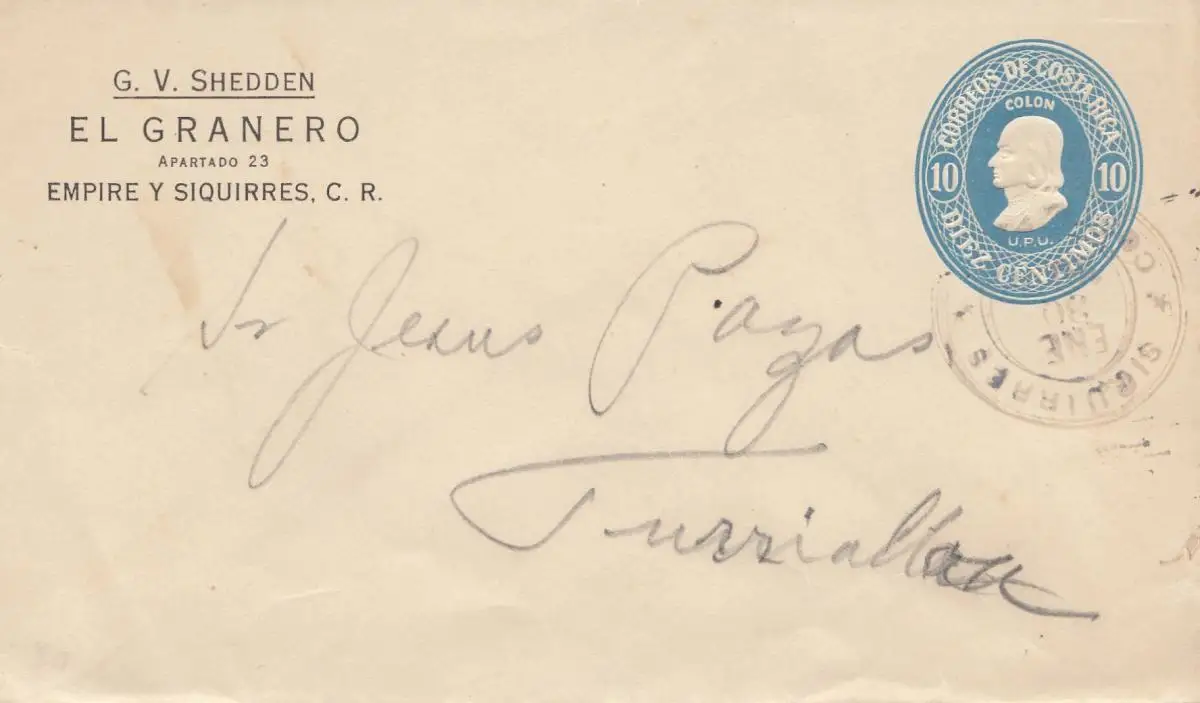 G. V. SHEDDEN
EL GRANERO
APARTADO 23
EMPIRE Y SIQUIRRES, C. R.
CORREOS DE COSTA RICA
COLON
10 10
U.P.U.
DIEZ CENTIMOS
Sr Jesus Pagas
SIQUIRRES
ENE
30